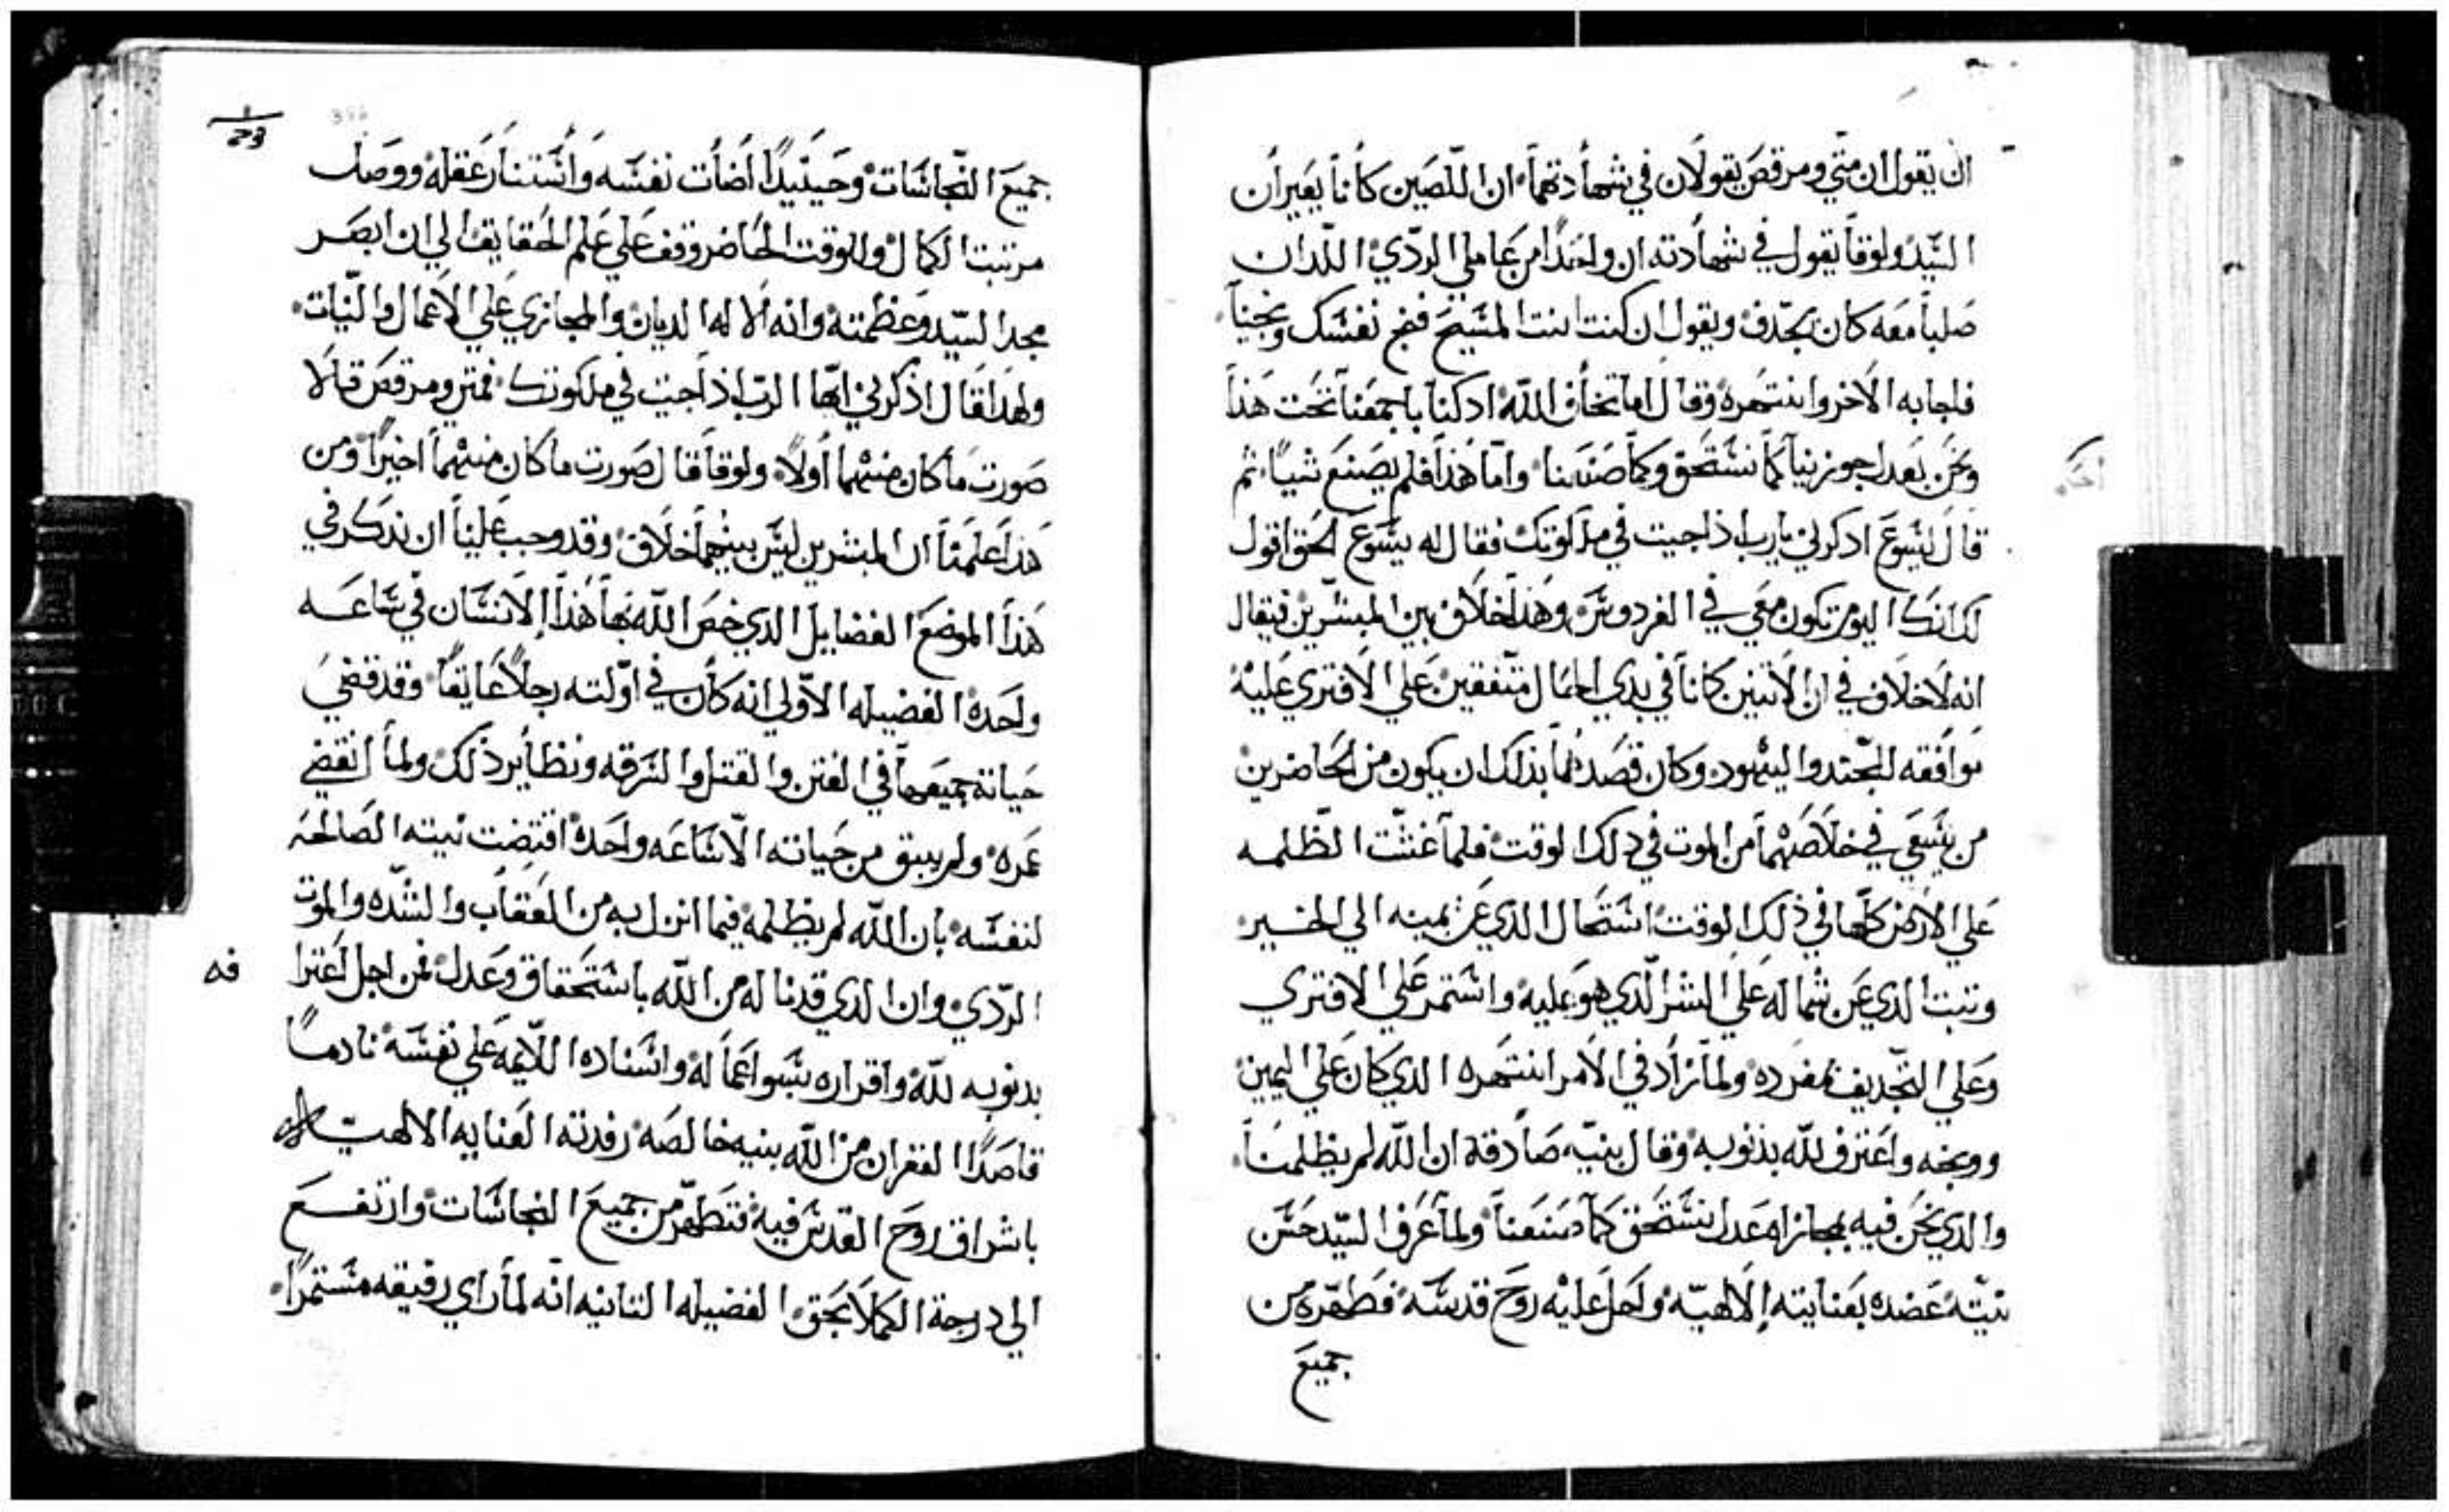 ان يقول ان متي ومرقص يقولان في شهادتهما ان اللصين كانا يعيران
السيد ولوقا يقول في شهادته ان واحدا من عاملي الردي اللدان
صلبا معه كان يجدف ويقول ان كنت انت المسيح فنج نفسك ونجينا
فاجابه الاخر وانتهره وقال اما تخاف الله ادكنا باجمعنا تحت هذا
ونحن بعدل جوزينا كما نستحق وكما صنعنا واما هذا فلم يصنع شيا ثم
قال ليسوع ادكرني يارب اذا جيت في ملكوتك فقال له يسوع الحق اقول
لك انك اليوم تكون معي في الفردوس وهذا خلاف بين المبشرين فيقال
انه لا خلاف في ان الاتنين كانا في بدي الحال متفقين علي الافتري عليه
موافقه للجند واليهود وكان قصدهما بذلك ان يكون من الحاضرين
من يسعي في خلاصهما من الموت في دلك الوقت فلما غشت الظلمه
علي الارض كلها في ذلك الوقت استحال الذي عن يمينه الي الخير
وتبت الذي عن شماله علي الشر الذي هو عليه واستمر علي الافتري
وعلي التجديف بمفرده ولما زاد في الامر انتهره الدي كان علي اليمين
ووبخه واعترف لله بذنوبه وقال بنيه صادقة ان الله لم يظلمنا
والذي نحن فيه مجازاه عدل نستحق كما صنعنا ولما عرف السيد حسن
نيته عضده بعنايته الالاهيه واحل عليه روح قدسه فطهره من
جميع
23
جميع النجاسات وحينيدا اضأت نفسه واستنار عقله ووصل
مرتبت الكمال والوقت الحاضر وقف علي علم الحقايق الي ان ابصر
مجد السيد وعظمته وانه الاله الديان والمجازي علي الاعمال والنيات
ولهدا قال اذكرني ايها الرب اذ اجيت في ملكوتك فمتي ومرقص قالا
صورت ما كان منهما أولا ولوقا قال صورت ما كان منهما اخيرا ومن
هذا علمنا ان المبشرين ليس بينهما خلاف وقد وجب علينا ان ندكر في
هذا الموضع الفضايل الدي خص الله بها هذا الانسان في ساعه
واحده الفضيله الاولي انه كان في اولته رجلا عايقا وقد قضي
حياته جميعها في الفتن والقتل والسرقه ونظاير ذلك ولما انقضي
عمره ولم يبق من حياته الا ساعه واحده اقتضت نيته الصالحه
لنفسه بان الله لم يظلمه فيما انزل به من العقاب والشده والموت
الردي وان الدي قد ناله من الله باستحقاق وعدل فمن اجل اعترا
فه
بدنوبه لله واقراره بسو اعماله واسناده اللايمه علي نفسه نادما
قاصدا الغفران من الله بنيه خالصه رفدته العنايه الالاهيه
باشراق روح القدس فيه فتطهر من جميع النجاسات وارتفع
الي درجة الكمال بحق الفضيله التانيه انه لما راي رفيقه مستمرا